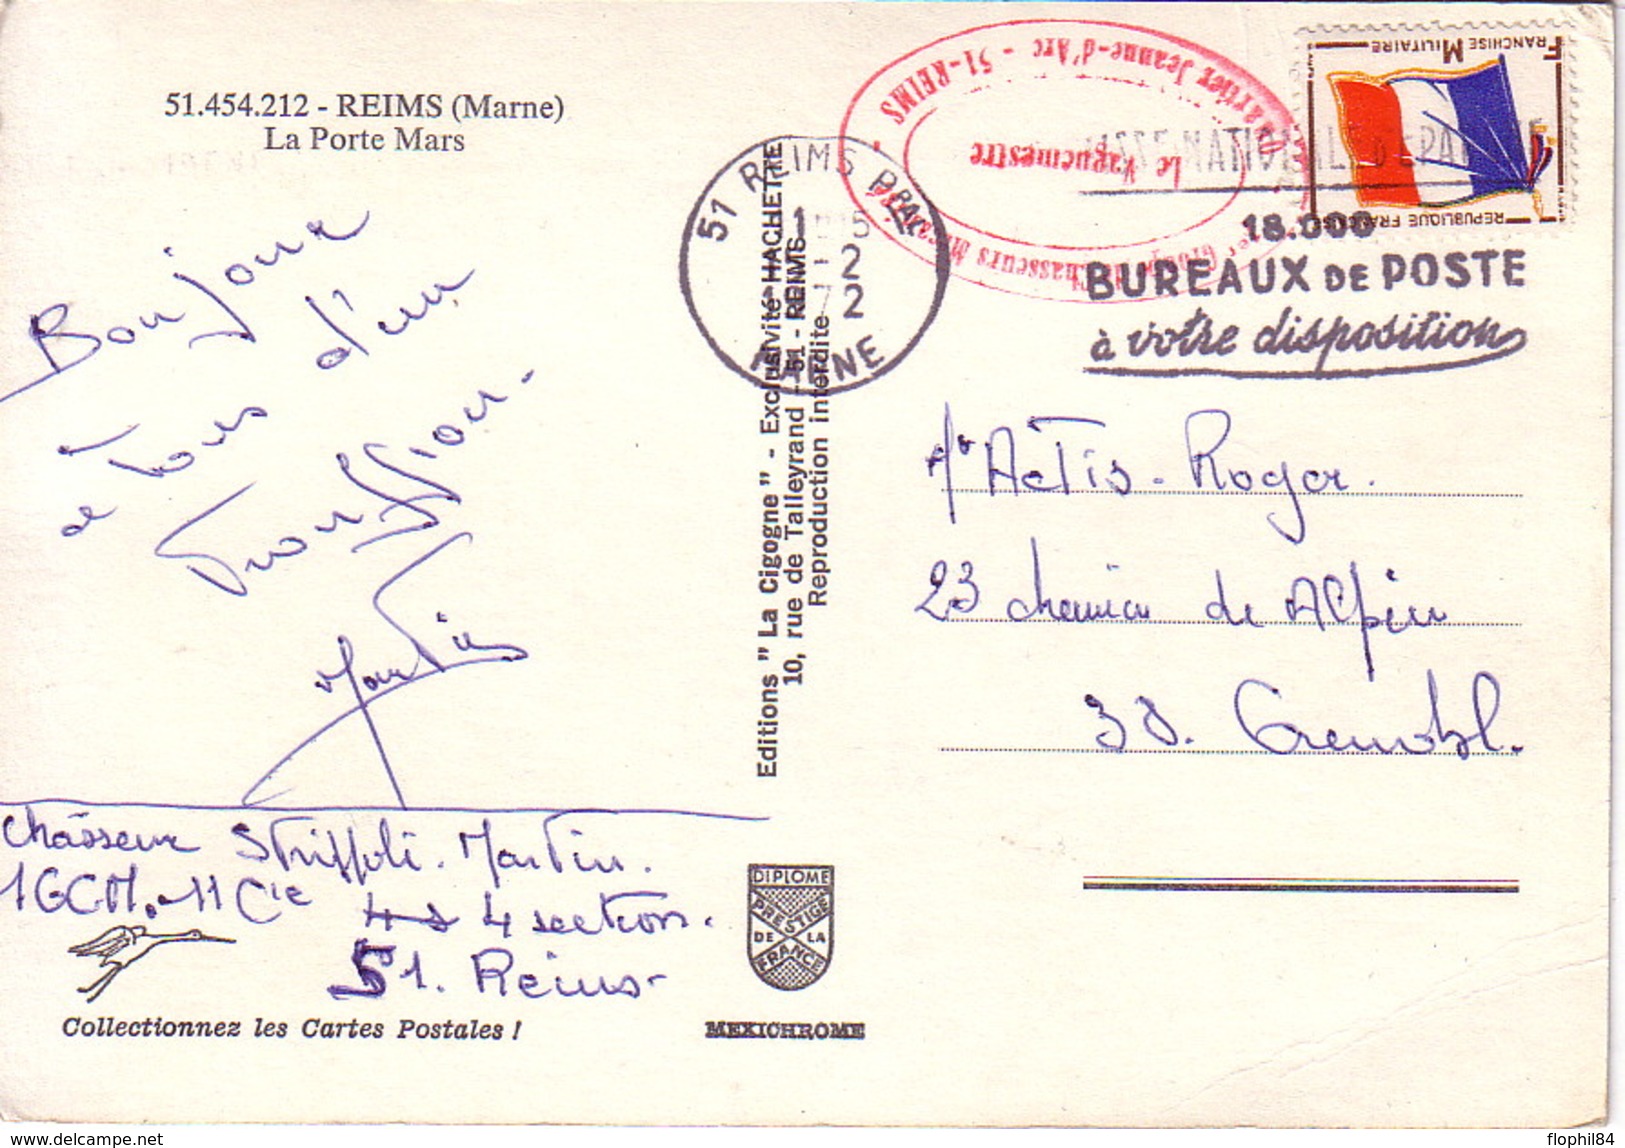 51.454.212 - REIMS (Marne)
La Porte Mars
Bonjour
à Tous d'un
Trouffion.
Martin
Chasseur Striffoli. Martin.
1GCM. 11 Cie 4 section.
51. Reims
Collectionnez les Cartes Postales !
Editions " La Cigogne " - Exclusivité HACHETTE
10, rue de Talleyrand - 51 - REIMS
Reproduction interdite
DIPLOME
PRESTIGE
DE LA
FRANCE
MEXICHROME
51 REIMS PPAL
2
72
MARNE
Quartier Jeanne-d'Arc - 51-REIMS
Le Vaguemestre
FRANCHISE MILITAIRE
REPUBLIQUE FRANCAISE
NATIONALE D'EPARGNE
18.000
BUREAUX DE POSTE
à votre disposition
Mr Actis - Roger.
23 chemin de Alpin
38. Grenoble.
flophil84